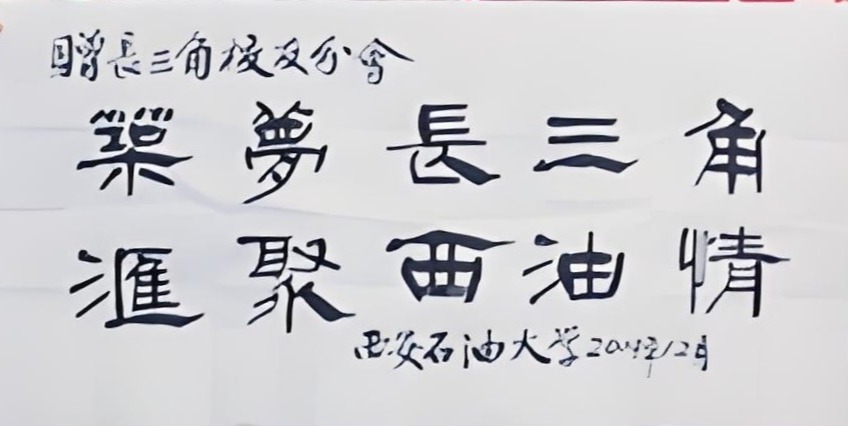 贈長三角校友分會
築夢長三角
滙聚西油情
西安石油大学2024年12月